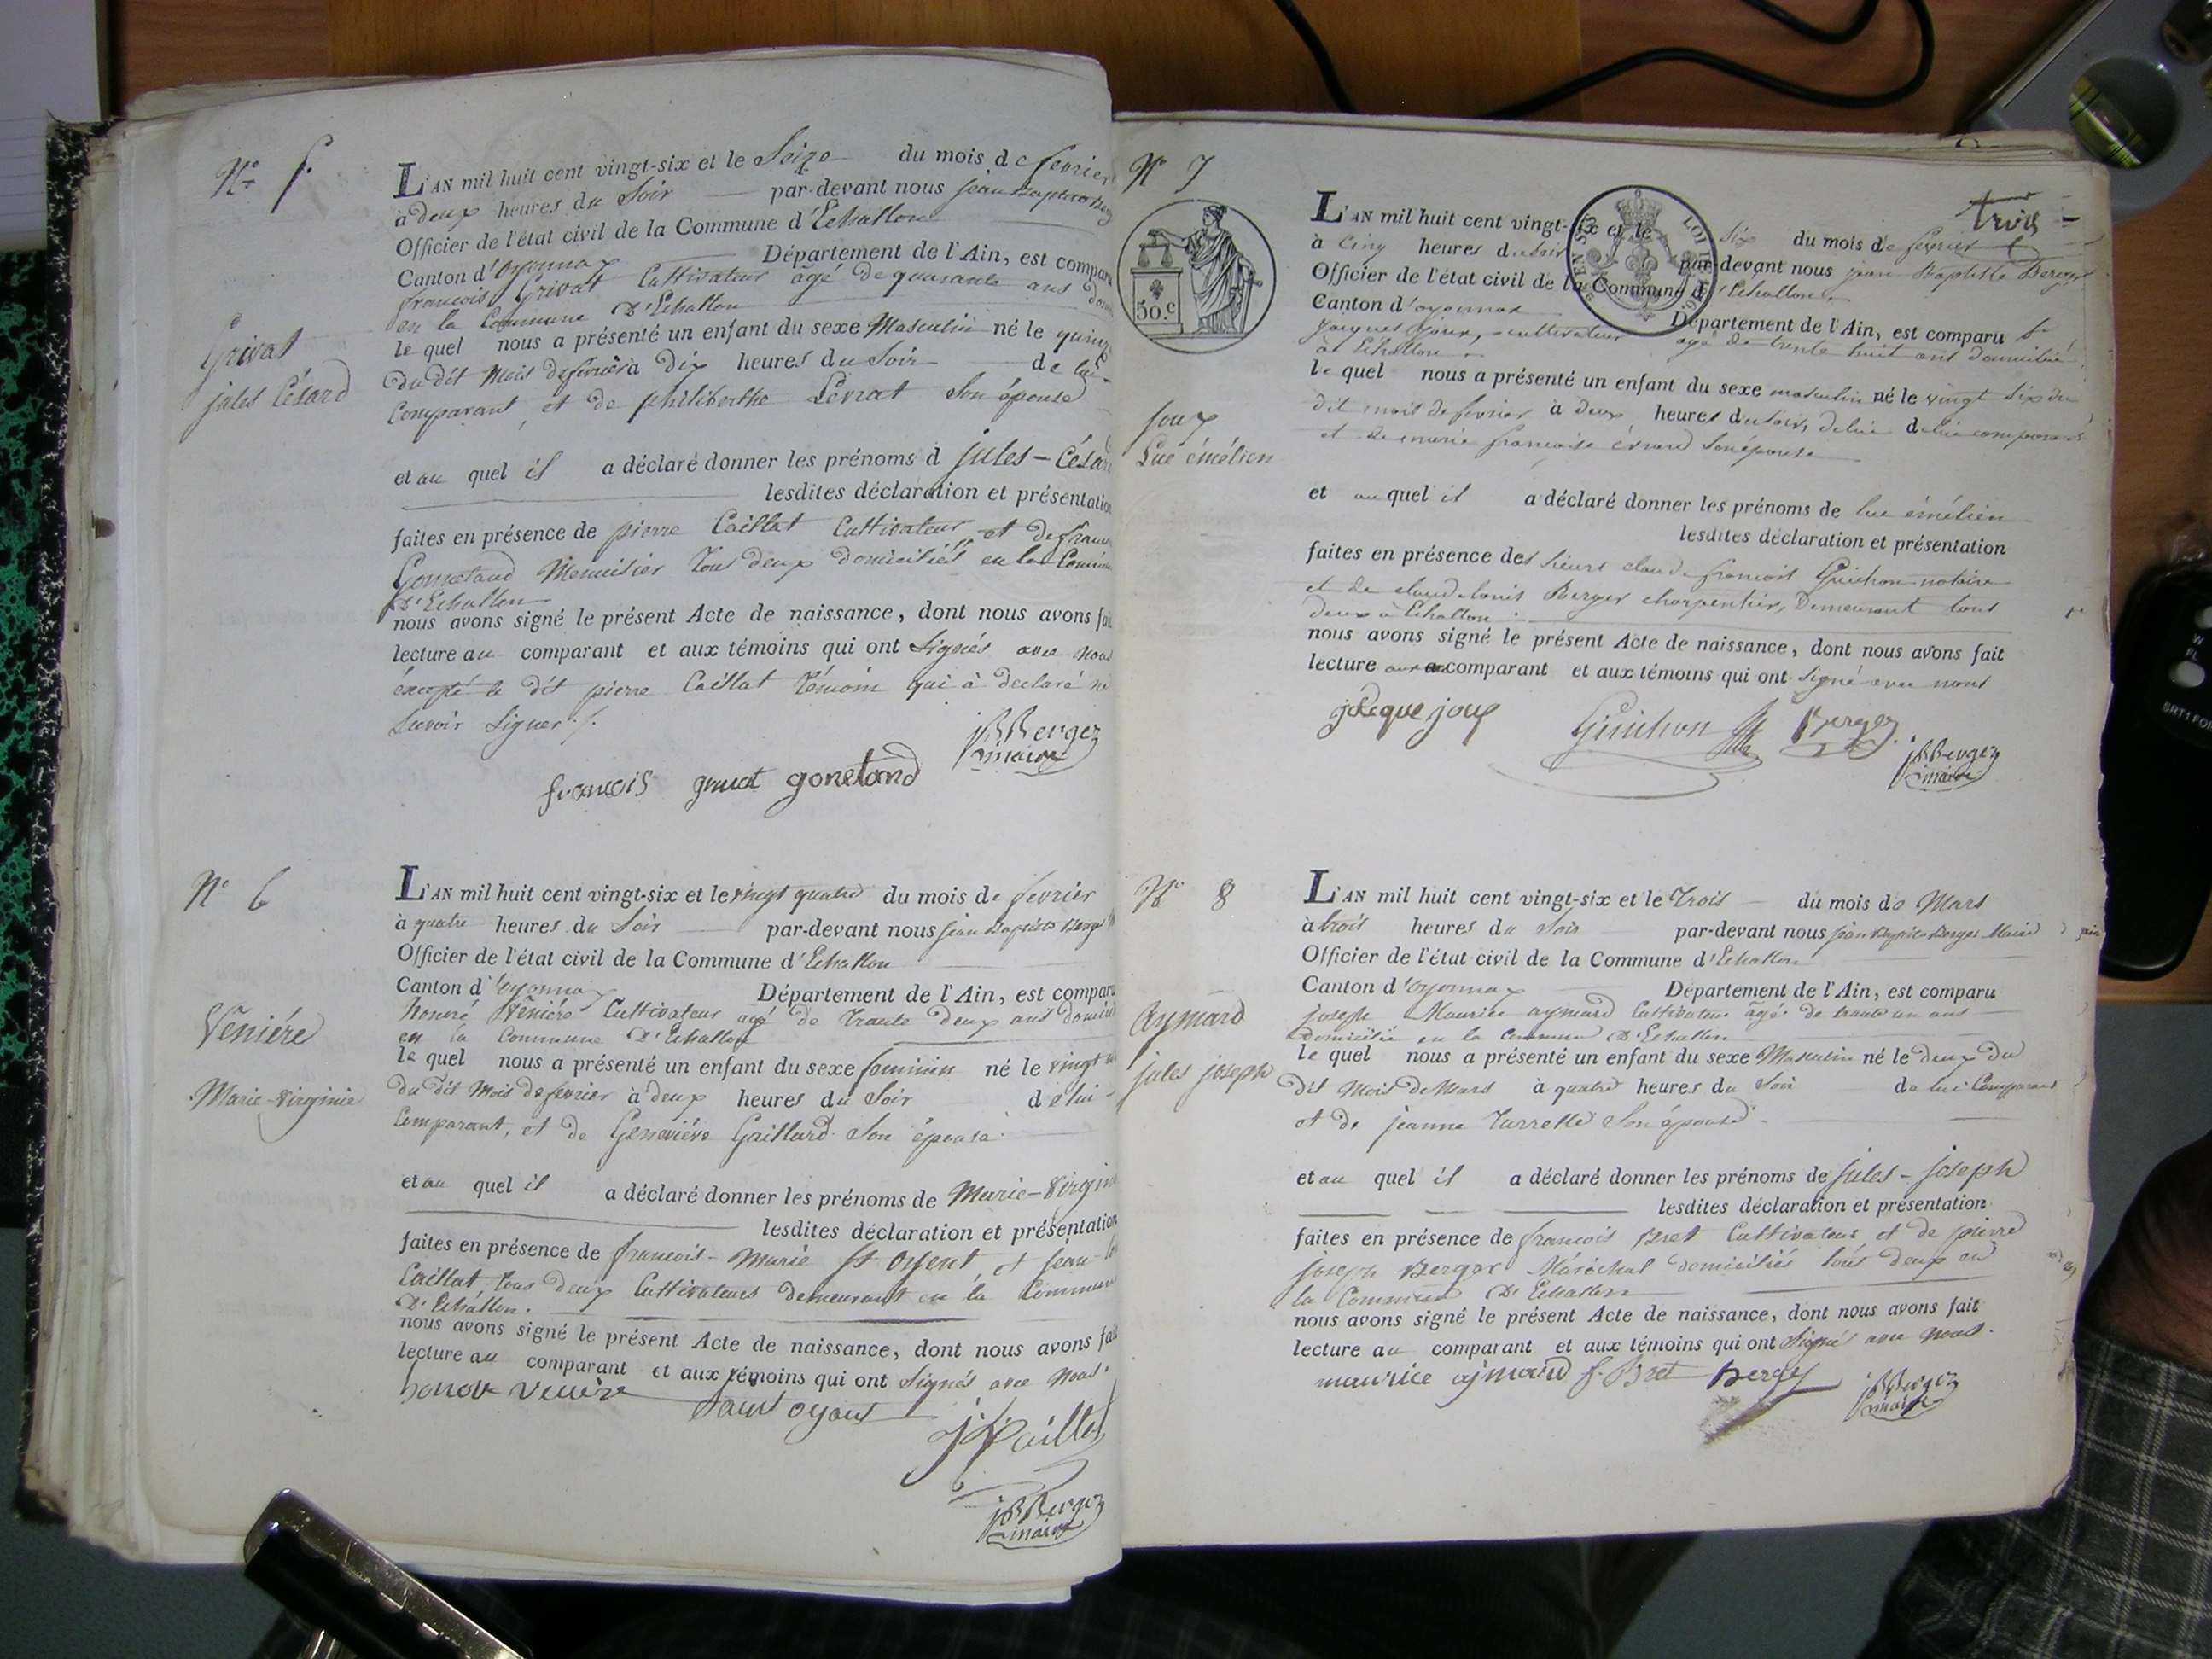 N.º 5.
L'AN mil huit cent vingt-six et le Seize du mois de fevrier
à deux heures du Soir par-devant nous jean Baptiste
Officier de l'état civil de la Commune d'Echallon
Canton d'oyonnax Département de l'Ain, est comparu
francois Grivat Cultivateur âgé de quarante ans
en la Commune D'Echallon
le quel nous a présenté un enfant du sexe Masculin né le quinze
du dit Mois de fevrier à Dix heures du Soir de lui
Comparant, et de philiberthe Levrat Son épouse
Grivat
jules Césard
et au quel il a déclaré donner les prénoms d jules-Césard
lesdites déclaration et présentation
faites en présence de pierre Caillat Cultivateur, et de
Gonetand Menuisier tous deux domiciliés en la Commune
D'Echallon
nous avons signé le présent Acte de naissance, dont nous avons fait
lecture au comparant et aux témoins qui ont Signés avec nous
excepté le dit pierre Caillat témoin qui à declaré ne
Savoir Signer ./.
JB Berger
maire
francois gruat gonetand
N.º 6
L'AN mil huit cent vingt-six et le vingt quatre du mois de fevrier
à quatre heures du Soir par-devant nous jean Baptiste Berger
Officier de l'état civil de la Commune d'Echallon
Canton d'oyonnax Département de l'Ain, est comparu
honoré Veniére Cultivateur agé de trante deux ans
en la Commune D'Echallon
le quel nous a présenté un enfant du sexe feminin né le vingt
du dit Mois de fevrier à deux heures du Soir de lui
Comparant, et de Geneviéve Gaillard Son épouse
Veniére
Marie-Virginie
et au quel il a déclaré donner les prénoms de Marie-Virginie
lesdites déclaration et présentation
faites en présence de francois-Marie St Oyent, et jean
Caillat tous deux Cultivateurs demeurant en la Commune
D'Echallon.
nous avons signé le présent Acte de naissance, dont nous avons fait
lecture au comparant et aux témoins qui ont Signés avec Nous
Saint oyant
Caillat
JB Berger
maire
N.º 7
trois
50.c
L'AN mil huit cent vingt-six et le six du mois de fevrier
à Cinq heures du soir par-devant nous jean Baptiste Berger
Officier de l'état civil de la Commune d'Echallon
Canton d'oyonnax Département de l'Ain, est comparu
jacques joux, cultivateur agé de trente huit ans domicilié
à Echallon
le quel nous a présenté un enfant du sexe masculin né le vingt six du
dit mois de fevrier à deux heures du soir, de lui de lui comparant
et de marie francoise évrard Son épouse
joux
Luc émélien
et au quel il a déclaré donner les prénoms de luc émélien
lesdites déclaration et présentation
faites en présence des sieurs claude francois Guichon notaire
et de claude louis Berger charpentier, Demeurant tous
deux à Echallon
nous avons signé le présent Acte de naissance, dont nous avons fait
lecture comparant et aux témoins qui ont Signé avec nous
jacque joux Guichon Berger
JB Berger
maire
N.º 8
L'AN mil huit cent vingt-six et le Trois du mois de Mars
à trois heures du Soir par-devant nous jean Baptiste Berger Maire
Officier de l'état civil de la Commune d'Echallon
Canton d'oyonnax Département de l'Ain, est comparu
joseph Maurice aymard Cultivateur âgé de trante un ans
domicilié en la Commune D'Echallon
le quel nous a présenté un enfant du sexe Masculin né le deux du
dit Mois de Mars à quatre heures du Soir de lui Comparant
et de jeanne Turrelle Son épouse
aymard
jules joseph
et au quel il a déclaré donner les prénoms de jules-joseph
lesdites déclaration et présentation
faites en présence de francois Bret Cultivateur et de pierre
joseph Berger Maréchal domiciliés tous deux en
la Commune D'Echallon
nous avons signé le présent Acte de naissance, dont nous avons fait
lecture au comparant et aux témoins qui ont Signés avec Nous.
maurice aymard f. Bret Berger
JB Berger
maire